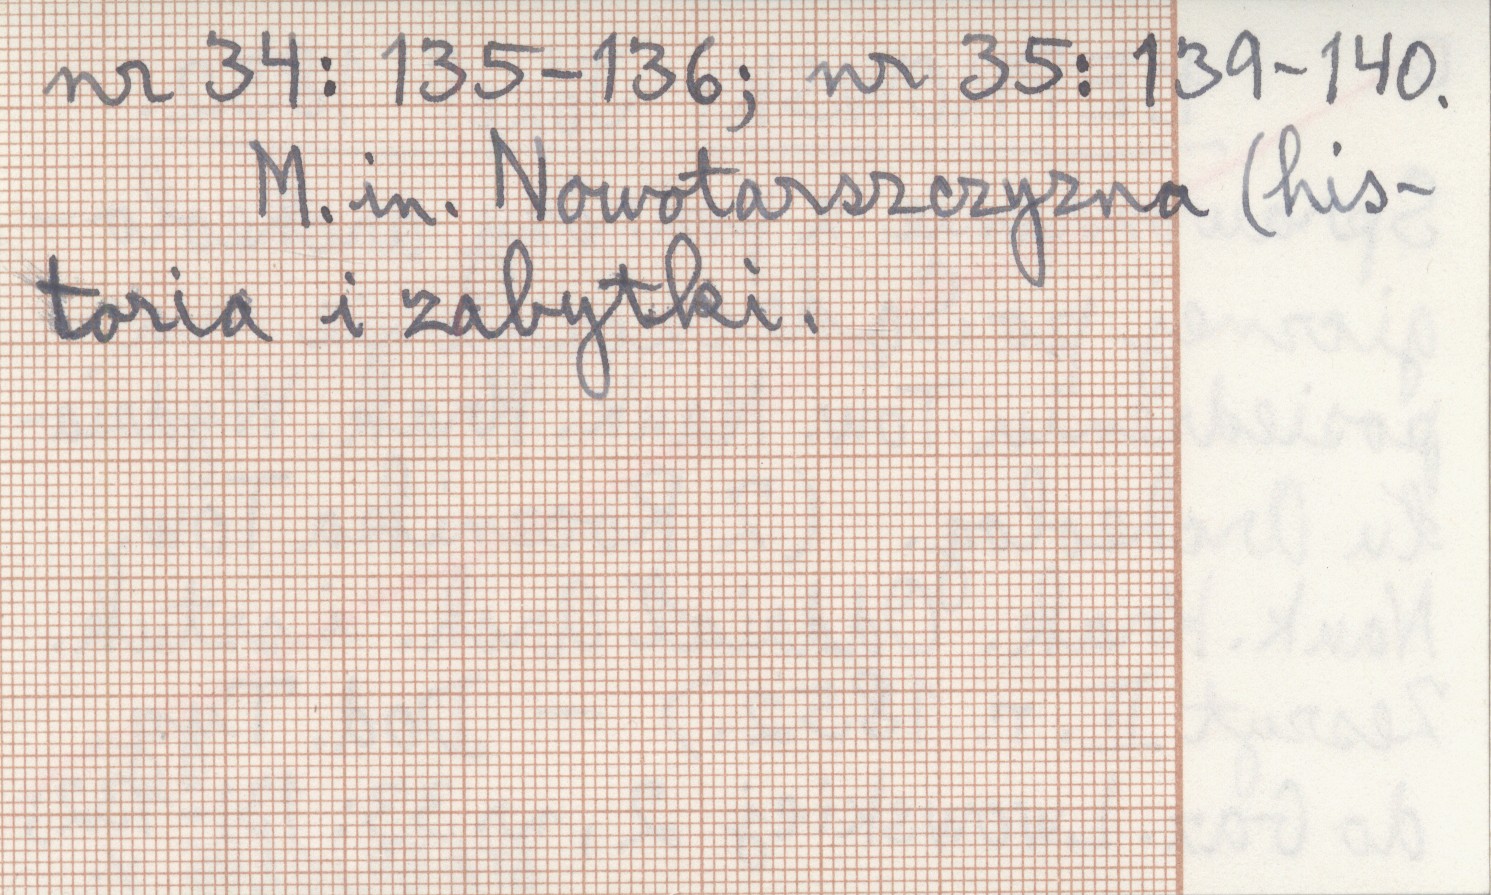 nr 34: 135-136; nr 35: 139-140.
M. in. Nowotarszczyzna (his-
toria i zabytki.